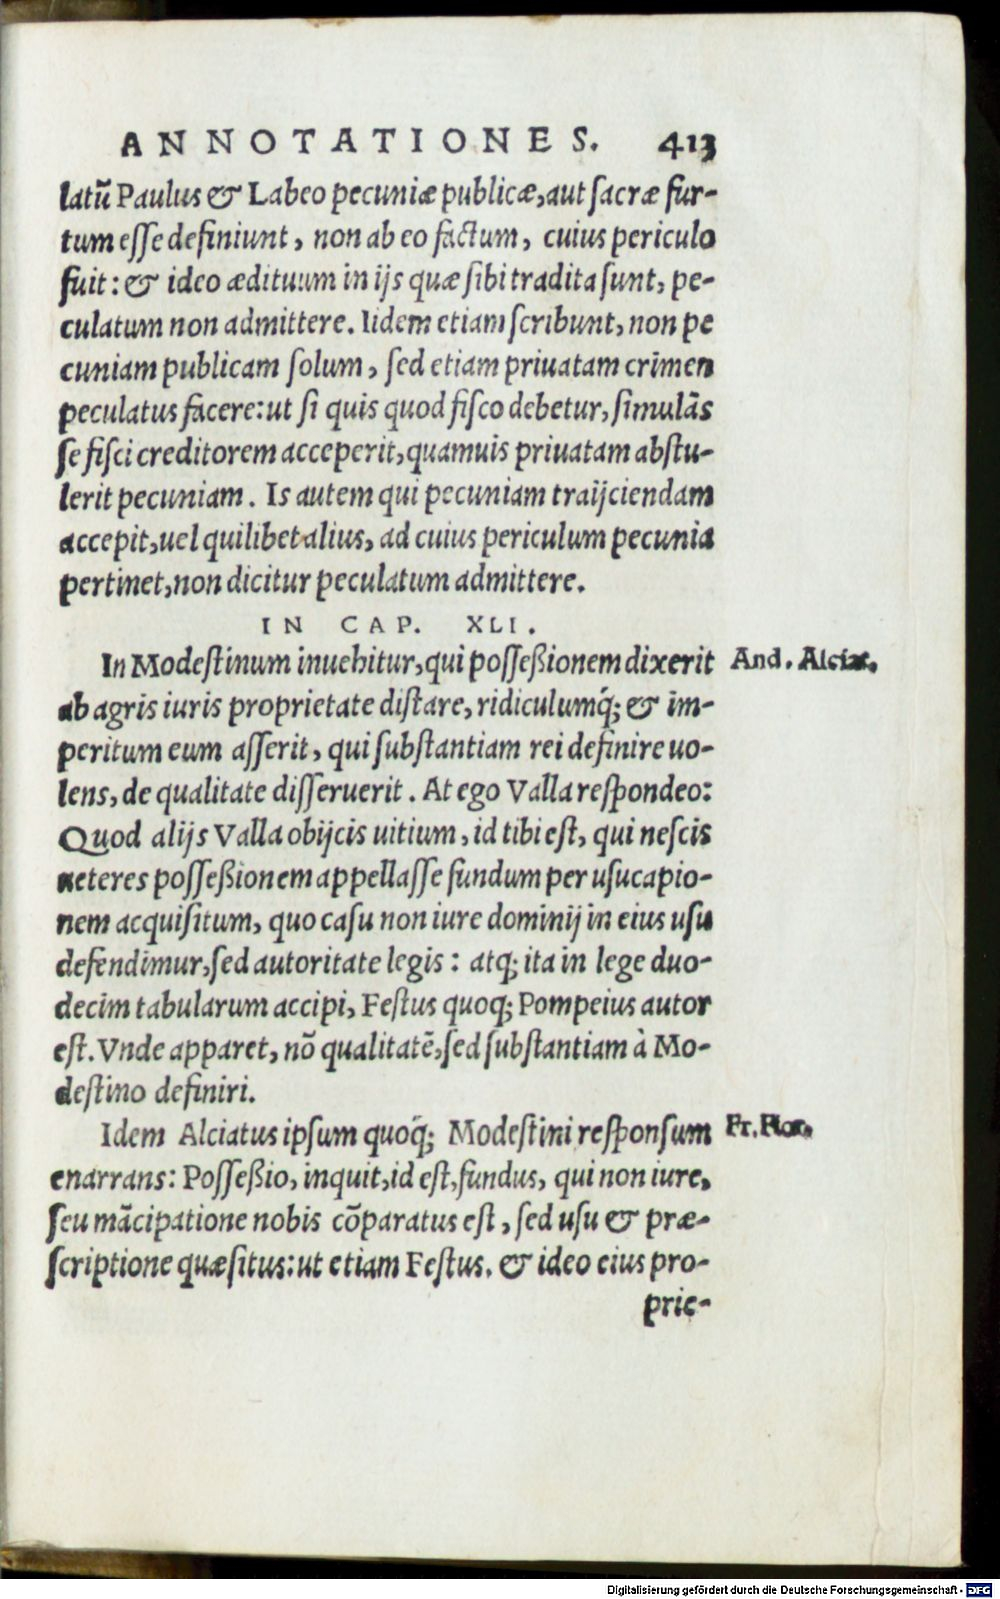 ANNOTATIONES. 413
latũ Paulus & Labeo pecuniæ publicæ, aut sacræ fur-
tum esse definiunt, non ab eo factum, cuius periculo
fuit: & ideo ædituum in ijs quæ sibi tradita sunt, pe-
culatum non admittere. Iidem etiam scribunt, non pe
cuniam publicam solum, sed etiam priuatam crimen
peculatus facere: ut si quis quod fisco debetur, simulãs
se fisci creditorem acceperit, quamuis priuatam abstu-
lerit pecuniam. Is autem qui pecuniam traijciendam
accepit, uel quilibet alius, ad cuius periculum pecunia
pertinet, non dicitur peculatum admittere.
IN CAP. XLI.
In Modestinum inuehitur, qui posseßionem dixerit And. Alciat.
ab agris iuris proprietate distare, ridiculumq́; & im-
peritum eum asserit, qui substantiam rei definire uo-
lens, de qualitate disseruerit. At ego Valla respondeo:
Quod alijs Valla obijcis uitium, id tibi est, qui nescis
ueteres posseßionem appellasse fundum per usucapio-
nem acquisitum, quo casu non iure dominij in eius usu
defendimur, sed autoritate legis: atq; ita in lege duo-
decim tabularum accipi, Festus quoq; Pompeius autor
est. Vnde apparet, nõ qualitatẽ, sed substantiam à Mo-
destino definiri.
Idem Alciatus ipsum quoq́; Modestini responsum Fr. Flor.
enarrans: Posseßio, inquit, id est, fundus, qui non iure,
seu mãcipatione nobis cõparatus est, sed usu & præ-
scriptione quæsitus: ut etiam Festus. & ideo eius pro-
prie-
Digitalisierung gefördert durch die Deutsche Forschungsgemeinschaft - DFG